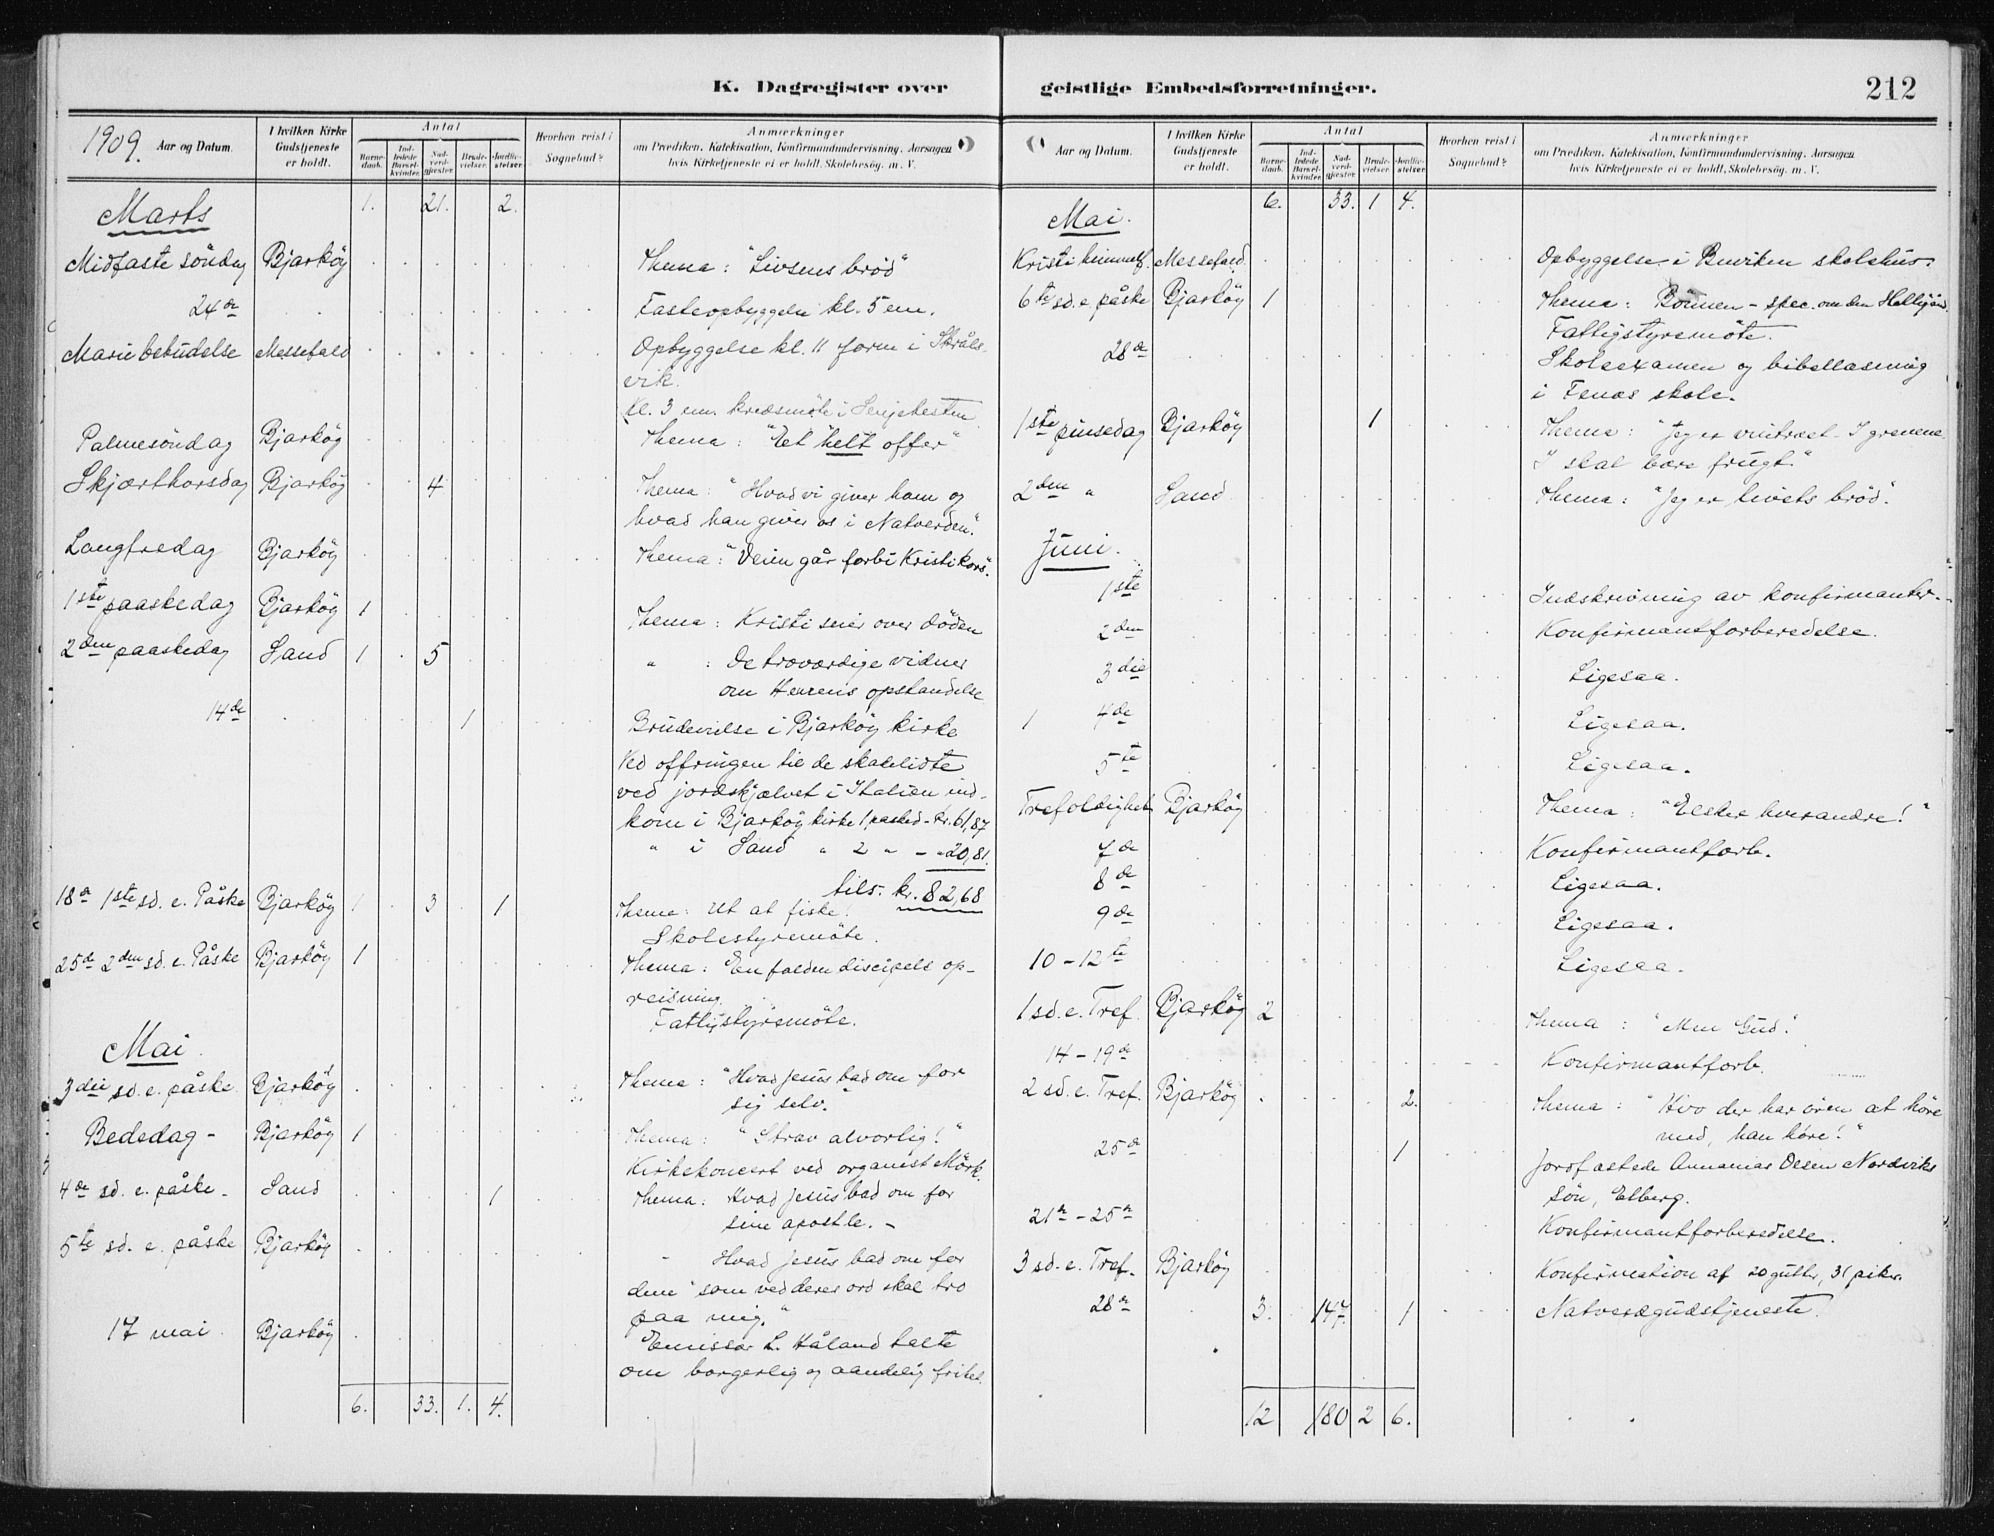 K. Dagregister over
1909. Aar og Datum. I hvilken Kirke Gudstjeneste er holdt. Antal Barnedaab. Indledede Barselkvinder. Nadverdgjæster. Brudevielser. Jordfæstelser. Hvorhen reist i Sognebud? Anmærkninger om Prædiken, Katekisation, Konfirmandundervisning, Aarsagen hvis Kirketjeneste ei er holdt, Skolebesøg. m. V.
Marts 1. 21. 2.
Midfaste söndag Bjarköy Thema: "Livsens bröd"
24de Fasteopbyggelse kl. 5 em.
Mariæ bebudelse Messefald Opbyggelse kl. 11 form i Skråls-
vik.
Kl. 3 em. kredsmöte i Senjehesten
Palmesöndag Bjarköy Thema: "Et helt offer"
Skjærthorsdag Bjarköy 4 Thema: "Hvad vi giver ham og
hvad han giver os i Natverden".
Langfredag Bjarköy Thema: "Veien går forbi Kristi kors".
1ste paaskedag Bjarköy 1 Thema: Kristi seier over döden
2den paaskedag Sand 1 5 " : De troværdige vidner
om Herrens opstandelse
14de 1 Brudevielse i Bjarköy kirke
Ved offringen til de skadelidte
ved jordskjælvet i Italien ind-
kom i Bjarköy kirke 1 pasked - kr. 61,87
" i Sand " 2 " - " 20,81
tils. kr. 82,68
18de 1ste sd. e. Påske Bjarköy 1 3 1 Thema: Ut at fiske!
Skolestyremöte.
25de 2den sd. e. Påske Bjarköy 1 Thema: En falden discipels op-
reisning.
Fattigstyremöte.
Mai
3die sd. e. påske Bjarköy Thema: "Hvad Jesus bad om for
sig selv."
Bededag - Bjarköy 1 Thema: "Stræv alvorlig!"
Kirkekoncert ved organist Mörk.
4de sd. e. påske - Sand 1 Thema: Hvad Jesus bad om for
sine apostle. -
5te sd. e. påske Bjarköy " Hvad Jesus bad om for
dem "som ved deres ord skal tro
paa mig."
17 mai Bjarköy Emissær L. Håland talte
om borgerlig og aandelig frihet.
6. 33. 1. 4.
geistlige Embedsforretninger. 212
Aar og Datum. I hvilken Kirke Gudstjeneste er holdt. Antal Barnedaab. Indledede Barselkvinder. Nadverdgjæster. Brudevielser. Jordfæstelser. Hvorhen reist i Sognebud? Anmærkninger om Prædiken, Katekisation, Konfirmandundervisning, Aarsagen hvis Kirketjeneste ei er holdt, Skolebesøg. m. V.
Mai. 6. 33. 1 4.
Kristi himmelf. Messefald. Opbyggelse i skolehus.
6te sd. e. påske Bjarköy 1 Thema: Bönnen - spec. om den Helligån
Fattigstyremöte.
28de Skoleexamen og bibellæsning
i Fenes skole.
1ste pinsedag Bjarköy 1 Thema: "Jeg er vintræet - I grenene
I skal bære frugt."
2den " Sand Thema: "Jeg er livets bröd".
Juni.
1ste Indskrivning av konfirmanter.
2den Konfirmantforberedelse.
3die Ligesaa.
1 4de Ligesaa.
5te Ligesaa.
Trefoldighet Bjarköy Thema: "Elsker hverandre!"
7de Konfirmantforb.
8de Ligesaa.
9de Ligesaa.
10 - 12te Ligesaa.
1 sd. e. Tref. Bjarköy 2 Thema: "Min Gud".
14 - 19de Konfirmantforb.
2 sd. e. Tref. Bjarköy 2. Thema: "Hvo der har ören at höre
med, han höre!"
25de 1 Jordfæstede Annanias Olsen Nordviks
sön, Elberg.
21de - 25de Konfirmantforberedelse.
3 sd. e. Tref. Bjarköy Konfirmation af 20 gutter, 31 piker.
28de 3. 147. 1 Natverdgudstjeneste.
12 180 2 6.